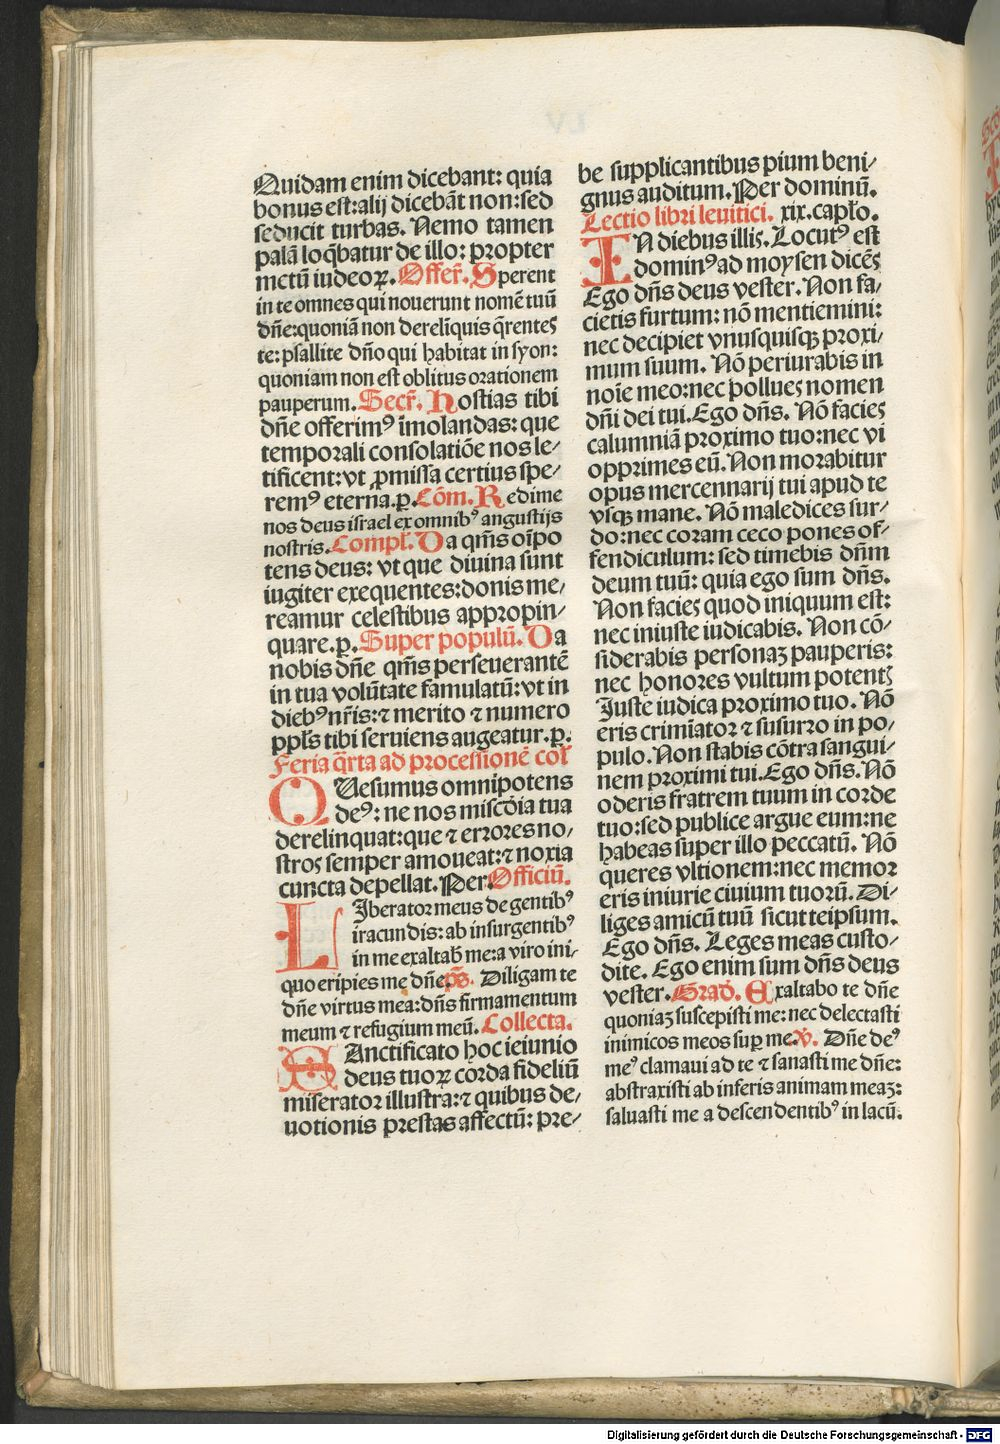 Quidam enim dicebant: quia
bonus est: alij dicebāt non: sed
seducit turbas. Nemo tamen
palā loq̄batur de illo: propter
metū iudeoꝝ. Offer̄. Sperent
in te omnes qui nouerunt nomē tuū
dn̄e: quoniā non dereliquis q̄renteſ
te: psallite dn̄o qui habitat in syon:
quoniam non est oblitus orationem
pauperum. Secr̄. Hostias tibi
dn̄e offerimꝰ īmolandas: que
temporali consolatiōe nos le⸗
tificent: vt ꝓmissa certius spe⸗
remꝰ eterna. p. Cōm. Redime
nos deus israel ex omnibꝰ angustijs
nostris. Compl̄. Da qm̄s oīpo
tens deus: vt que diuina sunt
iugiter exequentes: donis me⸗
reamur celestibus appropin⸗
quare. p. Super populū. Da
nobis dn̄e qm̄s perseuerantē
in tua volūtate famulatū: vt in
diebꝰ nr̄is: ⁊ merito ⁊ numero
ppl̄s tibi seruiens augeatur. p.
Feria q̄rta ad processionē col̄
QUesumus omnipotens
deꝰ: ne nos miscōia tua
derelinquat: que ⁊ errores no⸗
stros semper amoueat: ⁊ noxia
cuncta depellat. Per Officiū.
LIberator meus de gentibꝰ
iracundis: ab insurgentibꝰ
in me exaltab̄ me: a viro ini⸗
quo eripies me dn̄e. ps̄. Diligam te
dn̄e virtus mea: dn̄s firmamentum
meum ⁊ refugium meū. Collecta.
SAnctificato hoc ieiunio
deus tuoꝝ corda fideliū
miserator illustra: ⁊ quibus de⸗
uotionis prestas affectū: pre⸗
be supplicantibus pium beni⸗
gnus auditum. Per dominū.
Lectio libri leuitici. xix. capl̄o.
IN diebus illis. Locutꝰ est
dominꝰ ad moysen dicēs
Ego dn̄s deus vester. Non fa⸗
cietis furtum: nō mentiemini:
nec decipiet vnusquisqꝫ proxi⸗
mum suum. Nō periurabis in
noīe meo: nec pollues nomen
dn̄i dei tui. Ego dn̄s. Nō facies
calumniā proximo tuo: nec vi
opprimes eū. Non morabitur
opus mercennarij tui apud te
vsqꝫ mane. Nō maledices sur⸗
do: nec coram ceco pones of⸗
fendiculum: sed timebis dn̄m
deum tuū: quia ego sum dn̄s.
Non facies quod iniquum est:
nec iniuste iudicabis. Non cō⸗
siderabis personaꝫ pauperis:
nec honores vultum potentꝭ
Juste iudica proximo tuo. Nō
eris crimīator ⁊ susurro in po⸗
pulo. Non stabis cōtra sangui⸗
nem proximi tui. Ego dn̄s. Nō
oderis fratrem tuum in corde
tuo: sed publice argue eum: ne
habeas super illo peccatū. Nō
queres vltionem: nec memor
eris iniurie ciuium tuorū. Di⸗
liges amicū tuū sicut teipsum.
Ego dn̄s. Leges meas custo⸗
dite. Ego enim sum dn̄s deus
vester. Grad̄. Exaltabo te dn̄e
quoniaꝫ suscepisti me: nec delectasti
inimicos meos suꝑ me. ℣. Dn̄e deꝰ
meꝰ clamaui ad te ⁊ sanasti me dn̄e:
abstraxisti ab inferis animam meaꝫ:
saluasti me a descendentibꝰ in lacū.
Digitalisierung gefördert durch die Deutsche Forschungsgemeinschaft - DFG